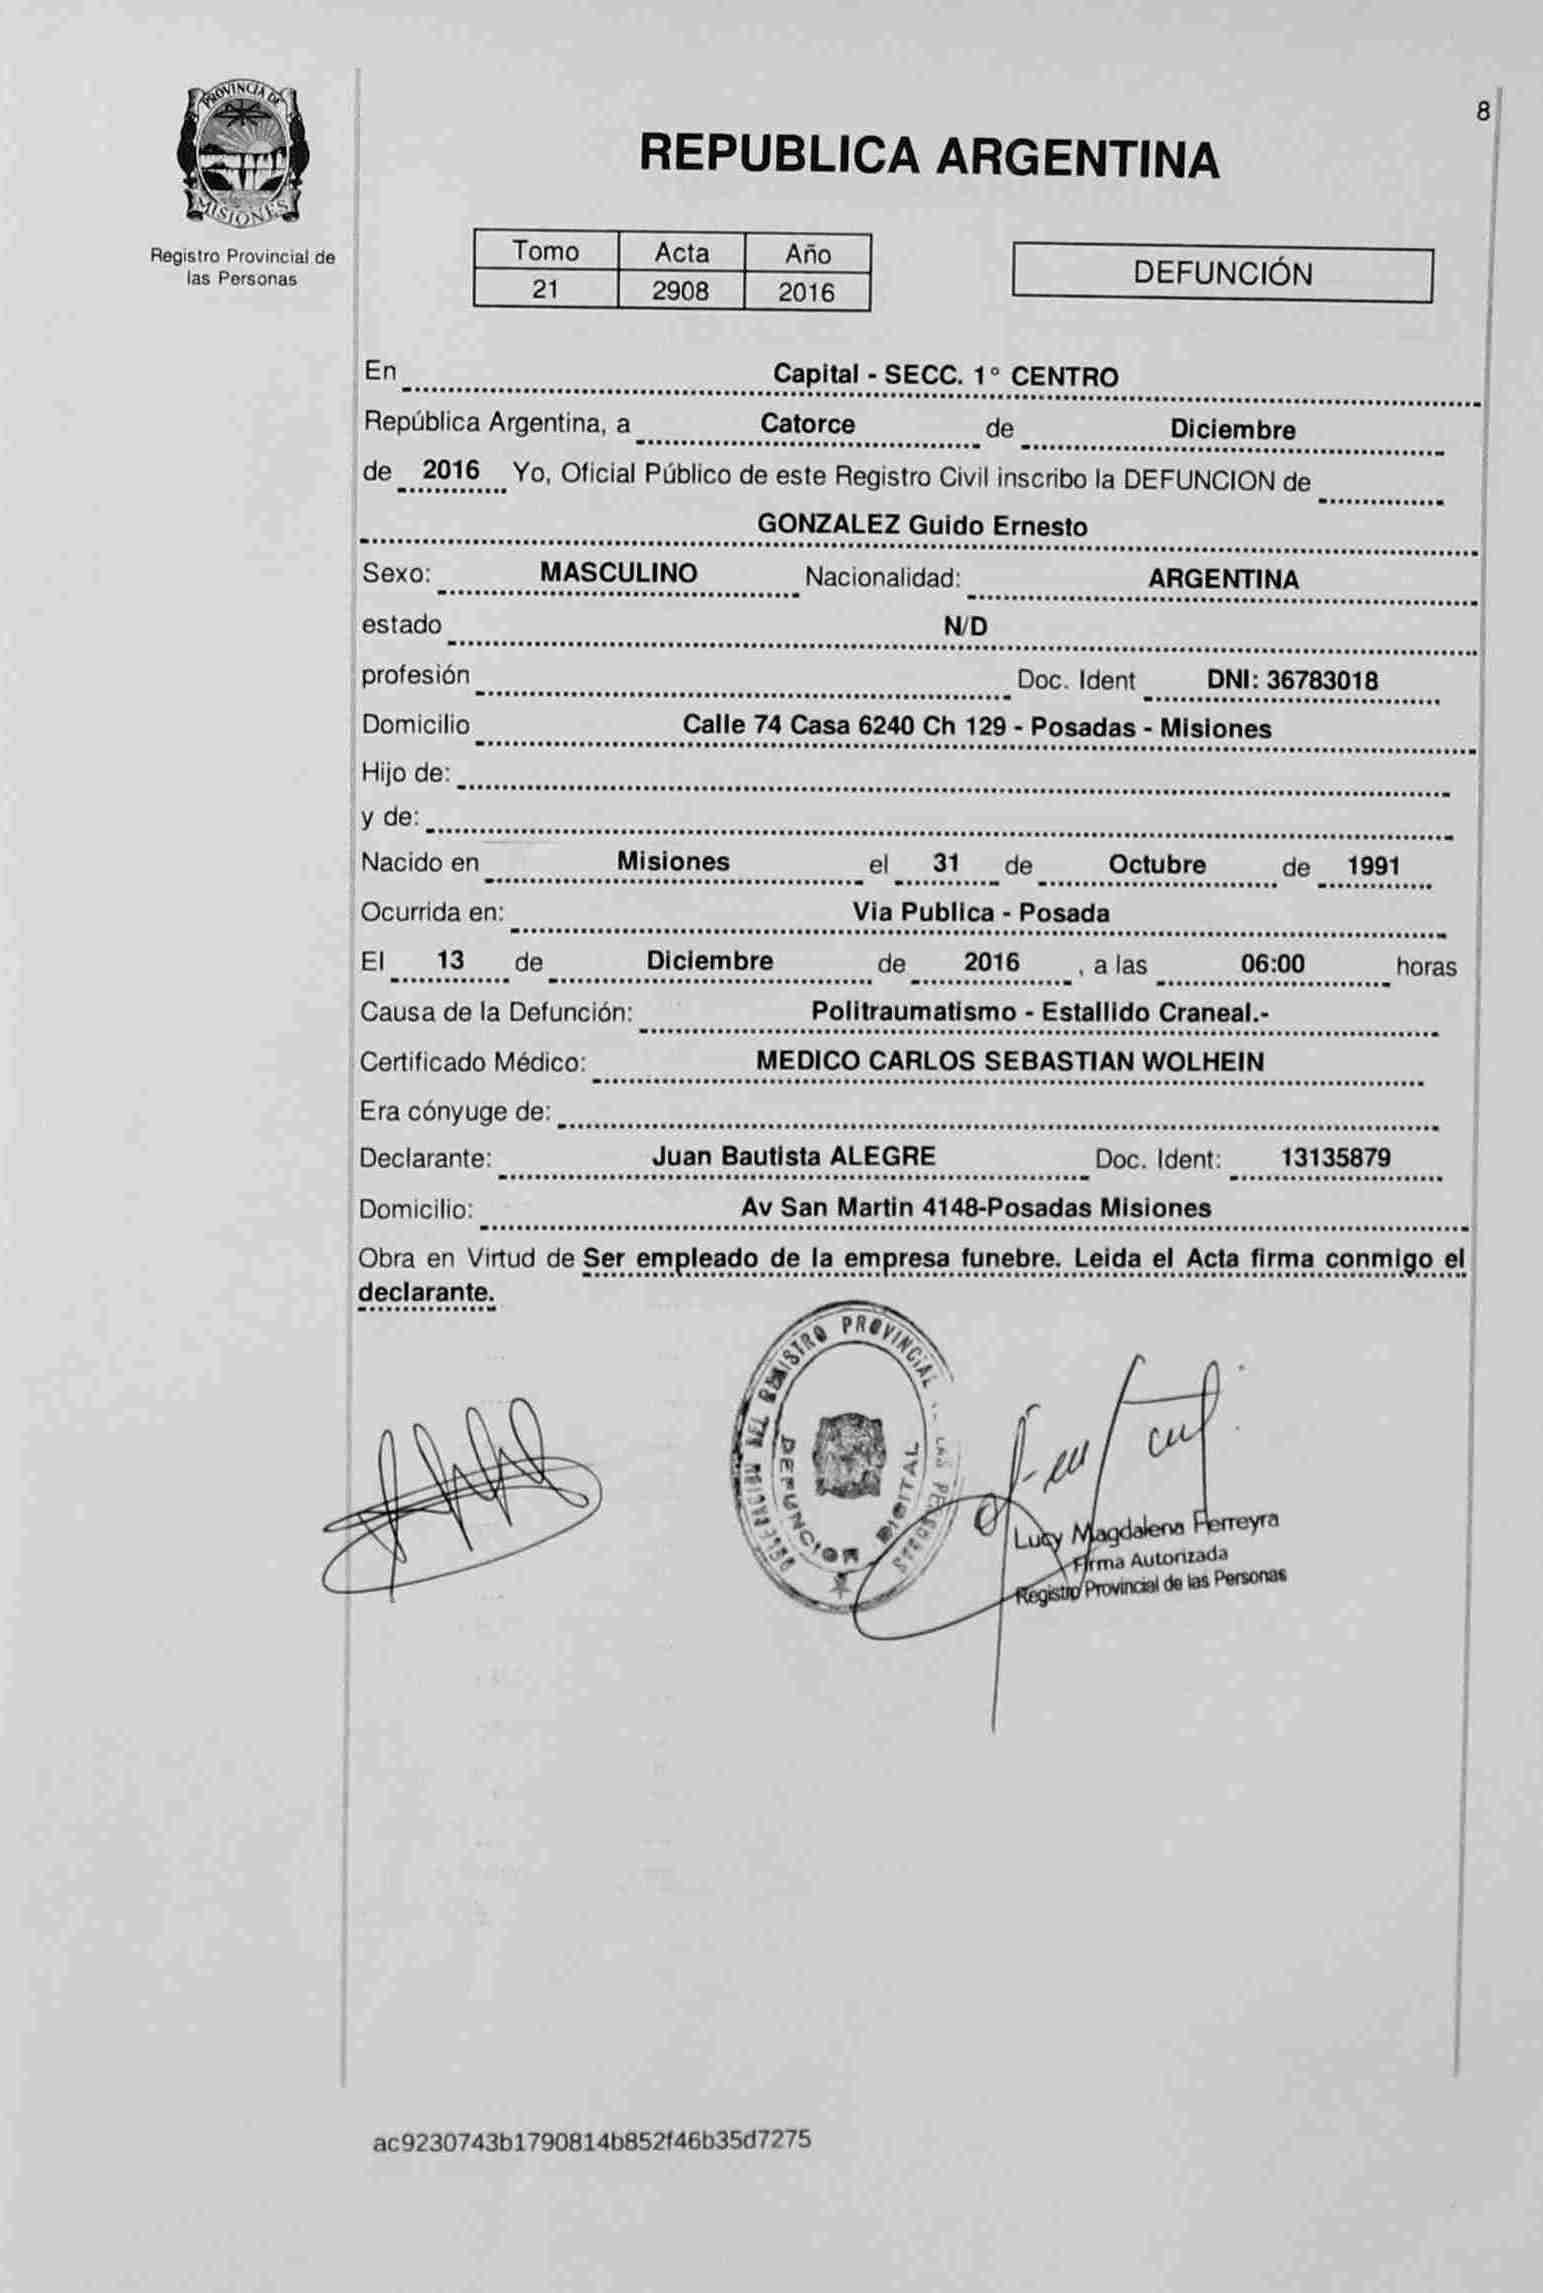 8
PROVINCIA DE
MISIONES
Registro Provincial de
las Personas
REPUBLICA ARGENTINA
Tomo Acta Año
21 2908 2016
DEFUNCIÓN
En Capital - SECC. 1° CENTRO
República Argentina, a Catorce de Diciembre
de 2016 Yo, Oficial Público de este Registro Civil inscribo la DEFUNCION de
GONZALEZ Guido Ernesto
Sexo: MASCULINO Nacionalidad: ARGENTINA
estado N/D
profesión Doc. Ident DNI: 36783018
Domicilio Calle 74 Casa 6240 Ch 129 - Posadas - Misiones
Hijo de:
y de:
Nacido en Misiones el 31 de Octubre de 1991
Ocurrida en: Via Publica - Posada
El 13 de Diciembre de 2016 , a las 06:00 horas
Causa de la Defunción: Politraumatismo - Estallido Craneal.-
Certificado Médico: MEDICO CARLOS SEBASTIAN WOLHEIN
Era cónyuge de:
Declarante: Juan Bautista ALEGRE Doc. Ident: 13135879
Domicilio: Av San Martin 4148-Posadas Misiones
Obra en Virtud de Ser empleado de la empresa funebre. Leida el Acta firma conmigo el
declarante.
DELEGACION DEL REGISTRO PROVINCIAL DE LAS PERSONAS
DEFUNCION DIGITAL
Lucy Magdalena Ferreyra
Firma Autorizada
Registro Provincial de las Personas
ac9230743b1790814b852f46b35d7275